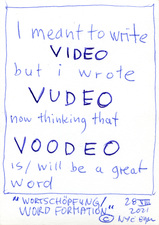 I meant to write
VIDEO
but i wrote
VUDEO
now thinking that
VOODEO
is/ will be a great
word
"WORTSCHÖPFUNG/
WORD FORMATION"
28 VII
2021
© NYC